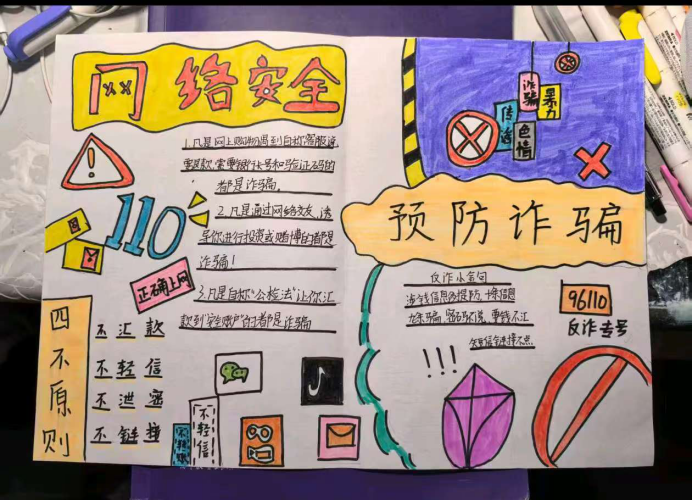 网络安全
1.凡是网上购物遇到自称客服说
要退款,索要银行卡号和验证码的
都是诈骗.
2.凡是通过网络交友,诱
导你进行投资或赌博的都是
诈骗!
3.凡是自称"公检法"让你汇
款到"安全账户"的都是诈骗
110
正确上网
四不原则
不汇款
不轻信
不泄密
不链接
不轻信
诈骗
暴力
传谣
色情
预防诈骗
反诈小金句
涉钱信息需提防
密码不说,要钱不汇
96110
反诈专号
!!!